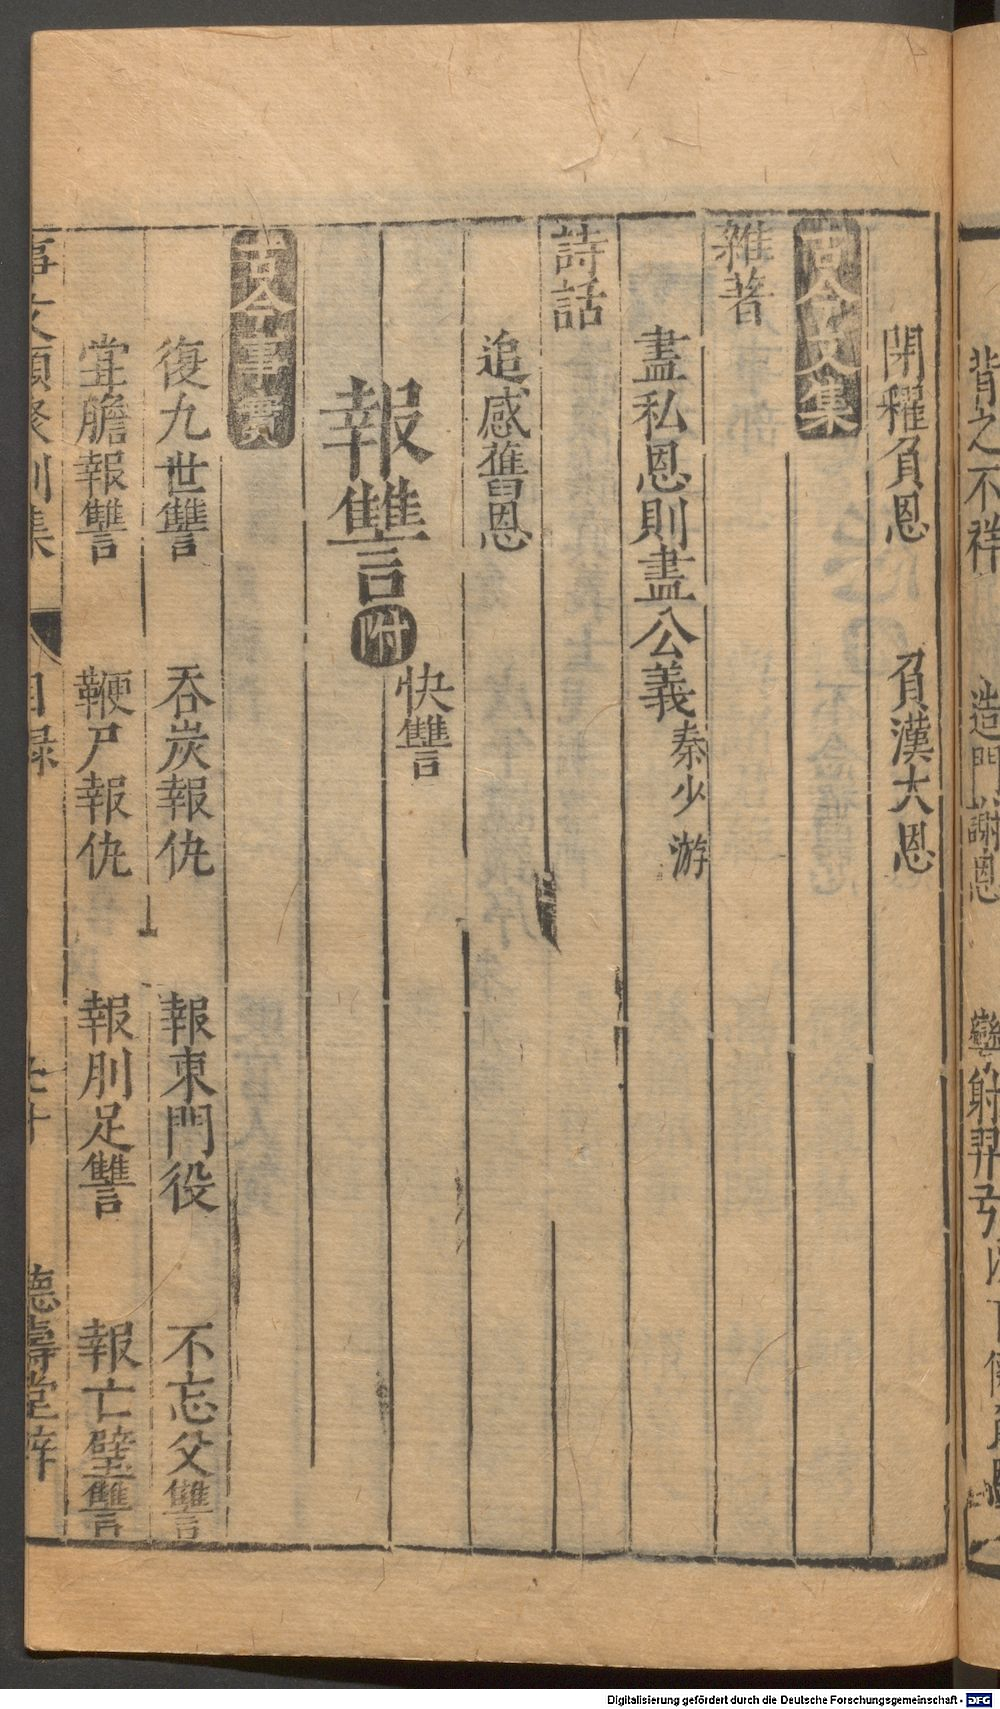 背之不祥　造門謝恩
閉糴負恩　負漢大恩
古今文集
雜著
盡私恩則盡公義　秦少游
詩話
追感舊恩
報讐附　快讐
古今事實
復九世讐　吞炭報仇　報東門役　不忘父讐
甞膽報讐　鞭尸報仇　報刖足讐　報亡璧讐
事文類聚別集　目録　卷十　德壽堂梓
Digitalisierung gefördert durch die Deutsche Forschungsgemeinschaft - DFG